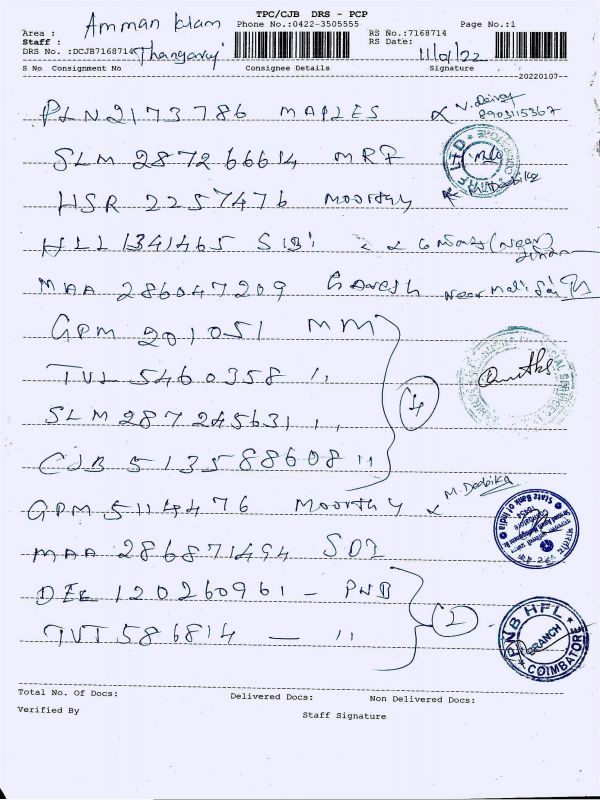 TPC/CJB DRS - PCP
Area : Amman klam Phone No.:0422-3505555 RS No.:7168714 Page No.:1
Staff : RS Date:
DRS No. :DCJB7168714 Thangaraj 11/01/22
S No Consignment No Consignee Details Signature
20220107--
PLN 2173786 MAPLES
8903115367
SLM 287266614 MRF
HSR 2257476 Moorthy
HLL 1341465 SIBI
MAA 286047209 Ganesh Near
GPM 201051 MM
TVL 5460358 ,,
SLM 287245631 ,,
4
CJB 513588608 ,,
GPM 5114476 Moorthy M. Deebika
State Bank of India
MAA 286871494 SDI
DEL 120260961 - PNB
2
TVT 586814 - ,,
PNB HFL
BRANCH
COIMBATORE
Total No. Of Docs: Delivered Docs: Non Delivered Docs:
Verified By Staff Signature